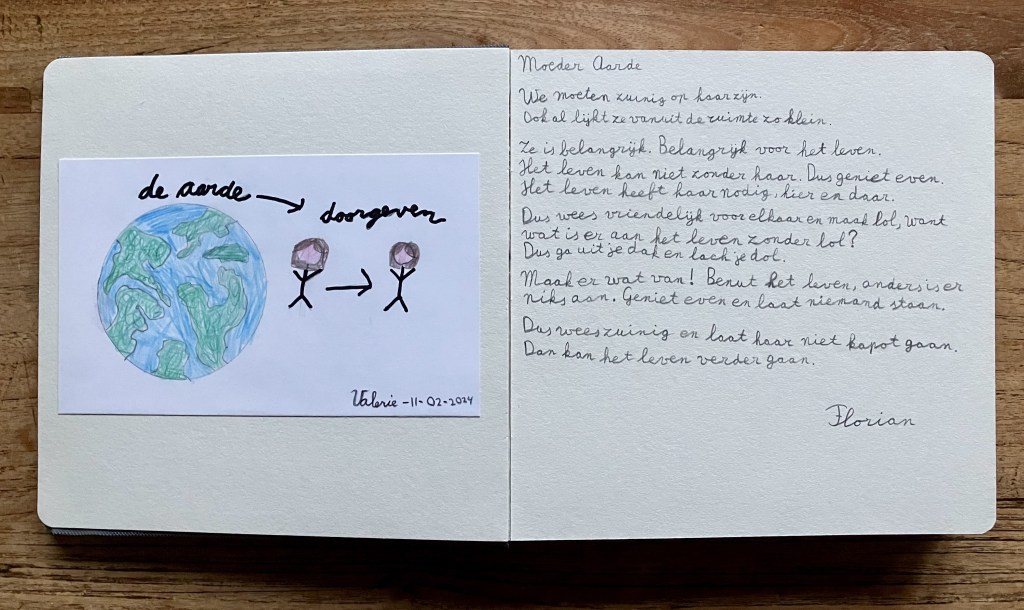 de aarde
doorgeven
Valerie -11-02-2024
Moeder Aarde
We moeten zuinig op haar zijn.
Ook al lijkt ze vanuit de ruimte zo klein.
Ze is belangrijk. Belangrijk voor het leven.
Het leven kan niet zonder haar. Dus geniet even.
Het leven heeft haar nodig, hier en daar.
Dus wees vriendelijk voor elkaar en maak lol, want
wat is er aan het leven zonder lol?
Dus ga uit je dak en lach je dol.
Maak er wat van! Benut het leven, anders is er
niks aan. Geniet even en laat niemand staan.
Dus wees zuinig en laat haar niet kapot gaan.
Dan kan het leven verder gaan.
Florian